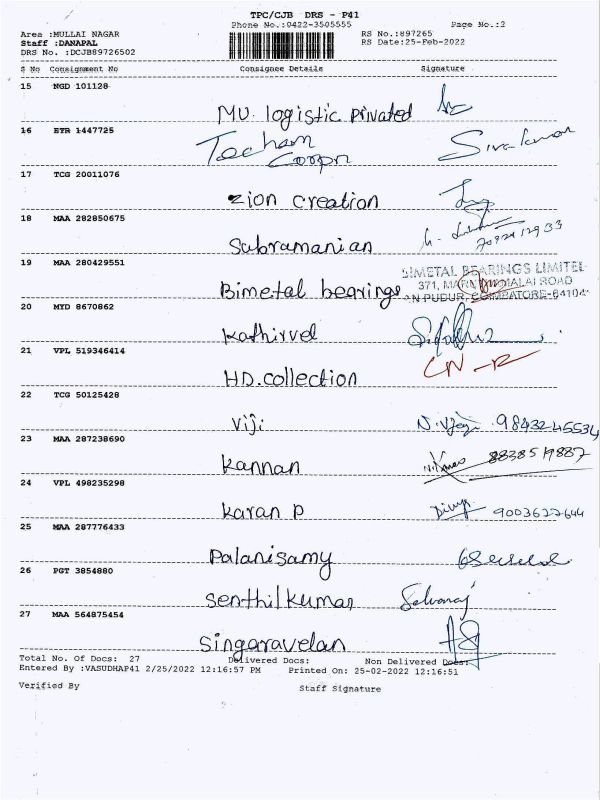 TPC/CJB DRS - P41
Phone No.:0422-3505555 Page No.:2
Area :MULLAI NAGAR RS No.:897265
Staff :DANAPAL RS Date:25-Feb-2022
DRS No. :DCJB89726502
S No Consignment No Consignee Details Signature
15 NGD 101128
MU. logistic privated
16 ETR 1447725
Techam Sivakumar
Corpn
17 TCG 20011076
zion creation
18 MAA 282850675
Subramanian
19 MAA 280429551
BIMETAL BEARINGS LIMITED
Bimetal bearings 371, ROAD
COIMBATORE-641041
20 MYD 8670862
Kathirvel
21 VPL 519346414
HD.collection
22 TCG 50125428
Viji 9843245534
23 MAA 287238690
Kannan 8838519887
24 VPL 498235298
Karan P 9003627644
25 MAA 287776433
Palanisamy
26 PGT 3854880
Senthilkumar Selvaraj
27 MAA 564875454
Singaravelan
Total No. Of Docs: 27 Delivered Docs: Non Delivered Docs:
Entered By :VASUDHAP41 2/25/2022 12:16:57 PM Printed On: 25-02-2022 12:16:51
Verified By Staff Signature